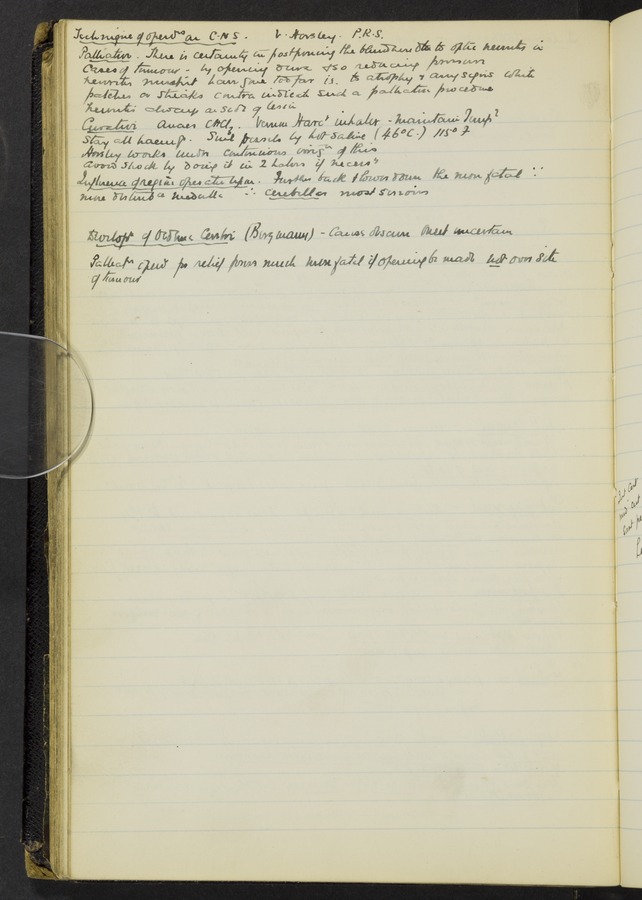 Technique of operns on C.N.S. V. Horsley. P.R.S.
Palliative. There is certainty in postponing the blindness due to optic neuritis in
cases of tumour - by opening dura & so reducing pressure
neuritis mustn't have gone too far i.e. to atrophy & any signs white
patches or streaks contra indicate such a palliative procedure
neuritis always on side of lesion
Curative Anaes CHCl3. Vernon Harc' inhaler - maintain Temp.
Stay all haemg. Small vessels by hot saline (46°C.) 115° F
Horsley works under continuous irrign of this
avoid shock by doing it in 2 halves if necessy
Influence of region of operation. Further back & lower down the more fatal ∵
more disturbce medulla ∴ cerebellar most serious
Developt of Oedema Cerebri (Bergmann) - cause obscure treat uncertain
Palleatv opern for relief press much more fatal if opening be made not over site
of tumour